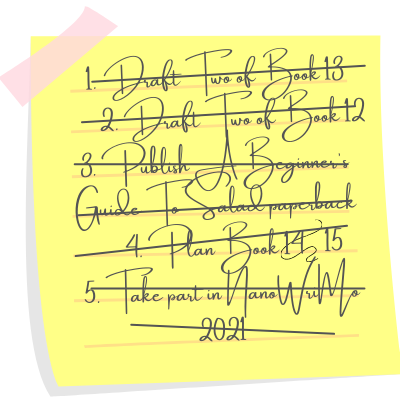 1. Draft Two of Book 13
2. Draft Two of Book 12
3. Publish A Beginner's
Guide To Salad paperback
4. Plan Book 14 15
5. Take part in NanoWriMo
2021